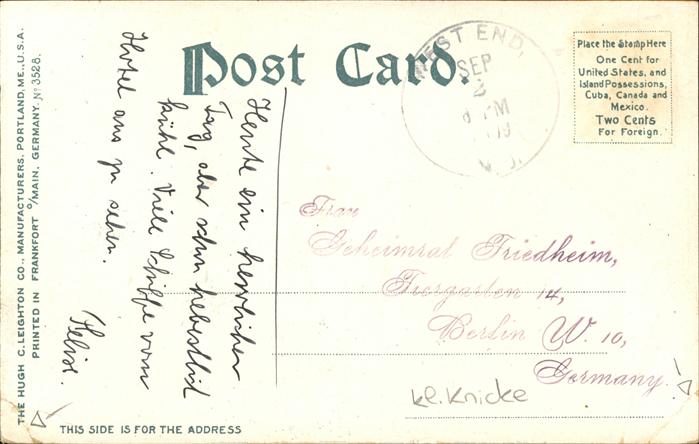 THE HUGH C. LEIGHTON CO., MANUFACTURERS, PORTLAND, ME., U.S.A.
PRINTED IN FRANKFORT o/MAIN, GERMANY. No 3528.
Post Card.
WEST END,
SEP
3
8 PM
N.J.
Place the Stamp Here
One Cent for
United States, and
Island Possessions,
Cuba, Canada and
Mexico.
Two Cents
For Foreign.
Heute ein herrlicher
Tag, aber schon herbstlich
kühl. Viele Schiffe vom
Hotel aus zu sehen.
Frau
Geheimrat Friedheim,
Tiergarten 14,
Berlin W. 10,
Germany.
kl. Knicke
THIS SIDE IS FOR THE ADDRESS